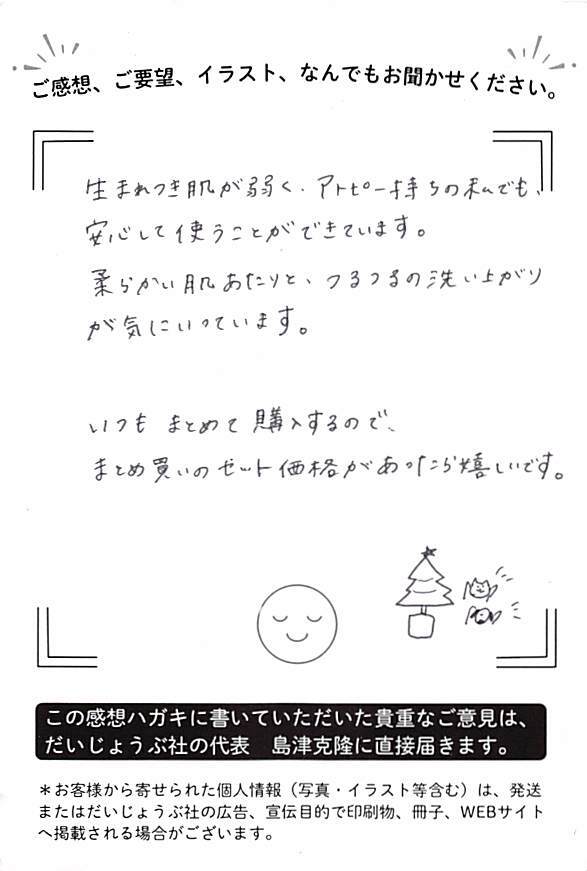 ご感想、ご要望、イラスト、なんでもお聞かせください。
生まれつき肌が弱く、アトピー持ちの私でも、
安心して使うことができています。
柔らかい肌あたりと、つるつるの洗い上がり
が気にいっています。
いつも まとめて購入するので、
まとめ買いのセット価格があったら嬉しいです。
この感想ハガキに書いていただいた貴重なご意見は、
だいじょうぶ社の代表　島津克隆に直接届きます。
＊お客様から寄せられた個人情報（写真・イラスト等含む）は、発送
またはだいじょうぶ社の広告、宣伝目的で印刷物、冊子、WEBサイト
へ掲載される場合がございます。